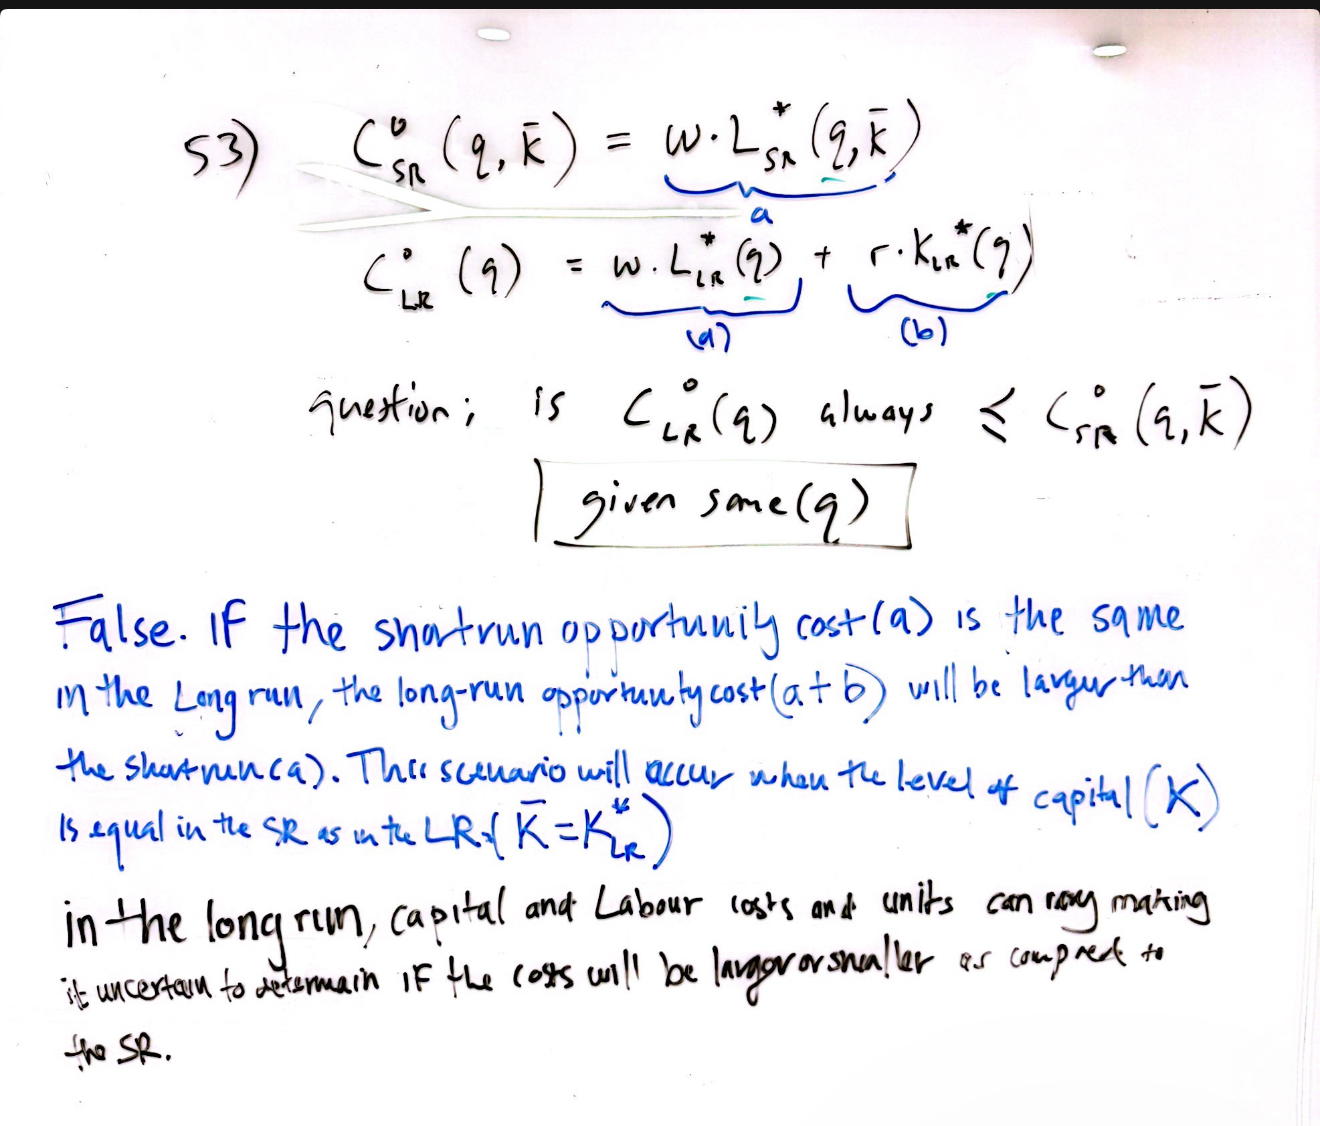 53) C°SR (q, k̄) = w·L*SR (q, k̄)
a
C°LR (q) = w.L*LR (q) + r.KLR*(q)
(a) (b)
question; is C°LR(q) always ≤ C°SR (q, k̄)
given same(q)
False. IF the shortrun opportunity cost(a) is the same
in the Long run, the long-run opportunity cost(a+b) will be larger than
the shortrun(a). This scenario will occur when the level of capital (K)
Is equal in the SR as in the LR.( K̄ = K*LR)
in the long run, capital and Labour costs and units can vary making
it uncertain to determain IF the costs will be larger or smaller as compred to
the SR.